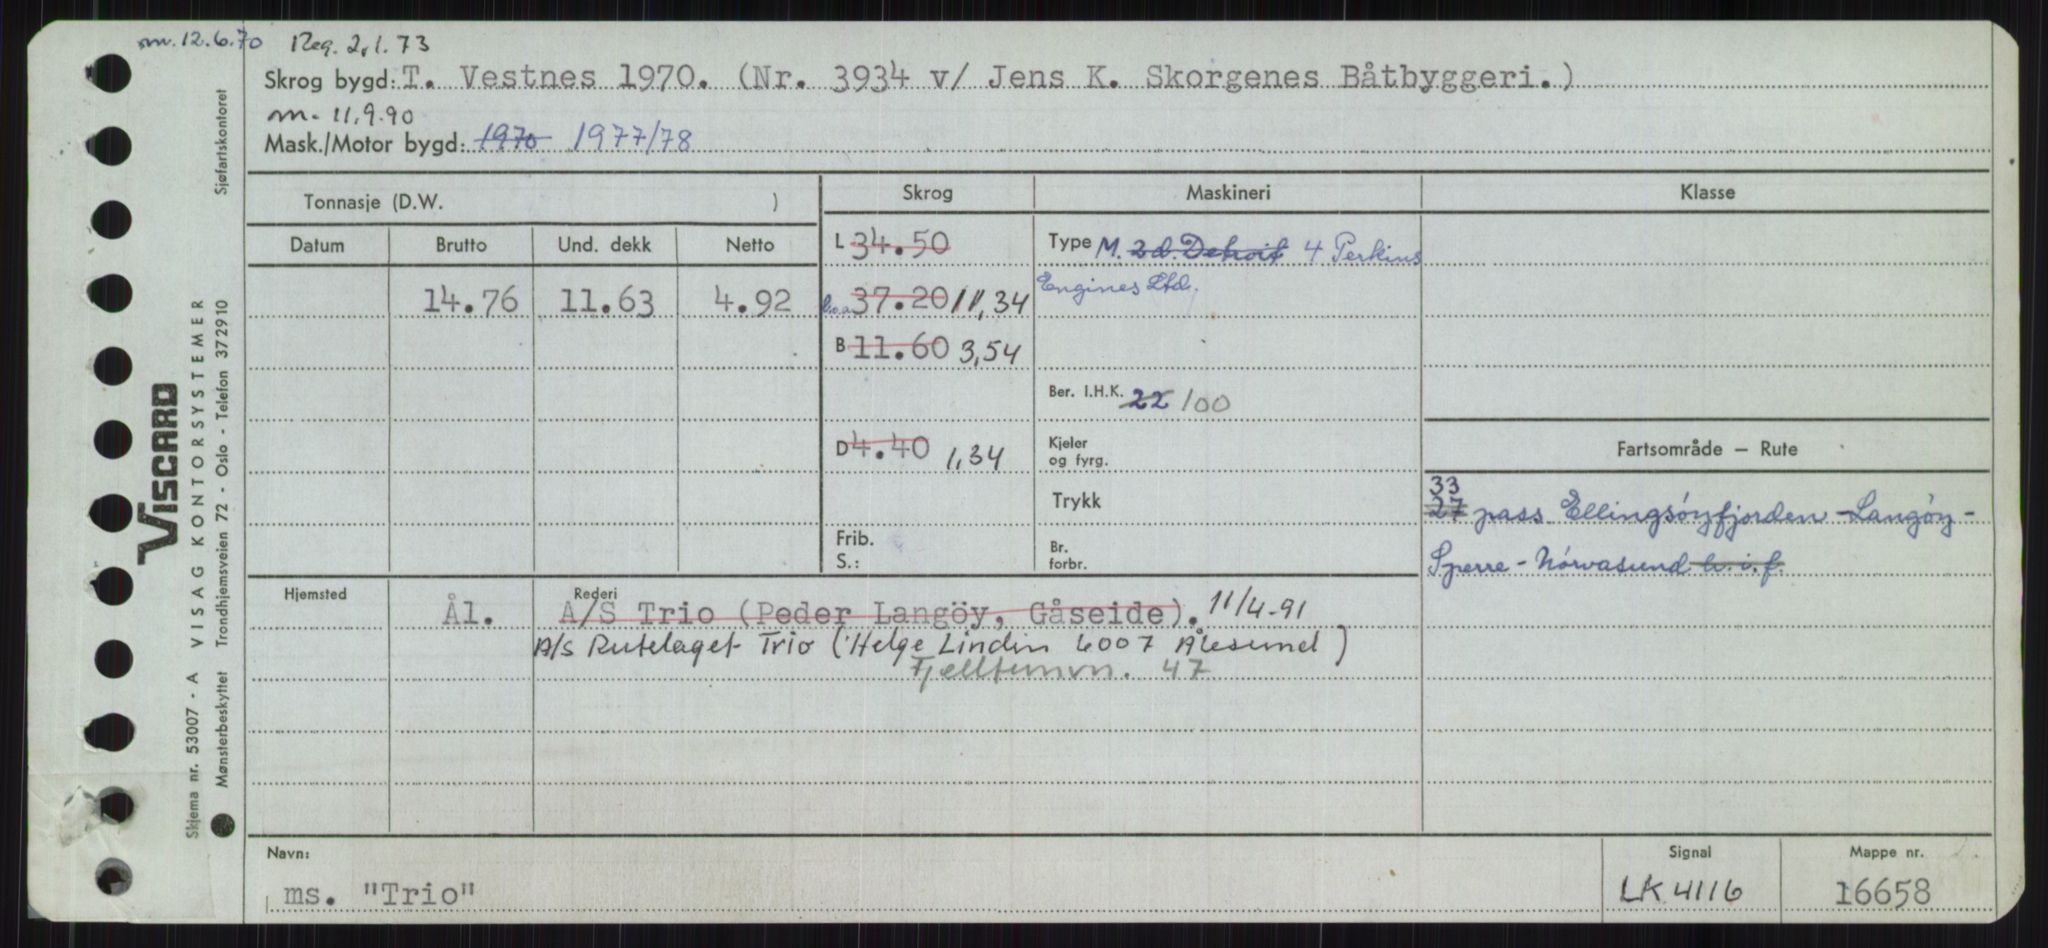 m. 12.6.70 Reg. 2.1.73
Skrog bygd: T. Vestnes 1970. (Nr. 3934 v/ Jens K. Skorgenes Båtbyggeri.)
m. 11.9.90
Mask./Motor bygd: 1970 1977/78
Tonnasje (D.W. )
Skrog
Maskineri
Klasse
Datum Brutto Und. dekk Netto
14.76 11.63 4.92
L 34.50
l.o.a. 37.20 11,34
B 11.60 3,54
D 4.40 1,34
Frib.
S.:
Type M. 2 d. Detroit 4 Perkins
Engines Ltd.
Ber. I.H.K. 22 100
Kjeler
og fyrg.
Trykk
Br.
forbr.
Fartsområde – Rute
33
27 pass. Ellingsöyfjorden - Langöy -
Sperre - Nörvasund
Hjemsted
Rederi
Ål. A/S Trio (Peder Langöy, Gåseide). 11/4-91
A/S Rutelaget Trio (Helge Lindin 6007 Ålesund)
Fjelltunvn. 47
Navn:
ms. "Trio"
Signal
LK 4116
Mappe nr.
16658
VISCARD
Skjema nr. 53007 - A VISAG KONTORSYSTEMER
Mønsterbeskyttet Trondhjemsveien 72 - Oslo - Telefon 372910 Sjøfartskontoret